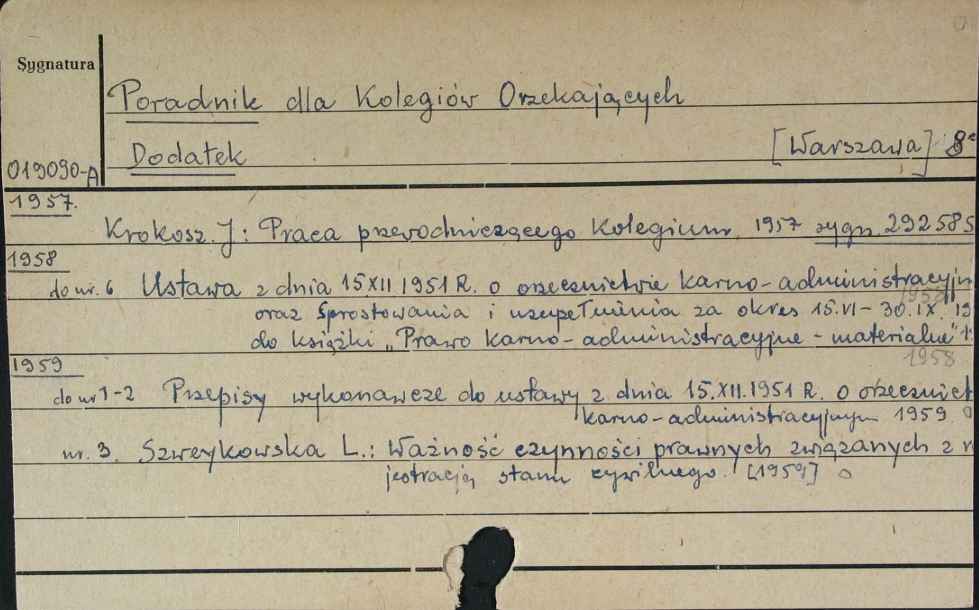 Sygnatura
Poradnik dla Kolegiów Orzekających
019090-A Dodatek [Warszawa] 8°
1957.
Krokosz. J: Praca przewodniczącego Kolegium 1957 sygn. 292585
1958
do nr. 6 Ustawa z dnia 15 XII 1951 R. o orzecznictwie karno-administracyjn
oraz Sprostowania i uzupełnienia za okres 15.VI - 30.IX. 19
do książki „Prawo karno-administracyjne - materialne" 1
1958
1959
do nr 1-2 Przepisy wykonawcze do ustawy z dnia 15.XII.1951 R. o orzecznict
karno-administracyjnym 1959
nr. 3. Szweykowska L.: Ważność czynności prawnych związanych z r
jestracją stanu cywilnego. [1959]